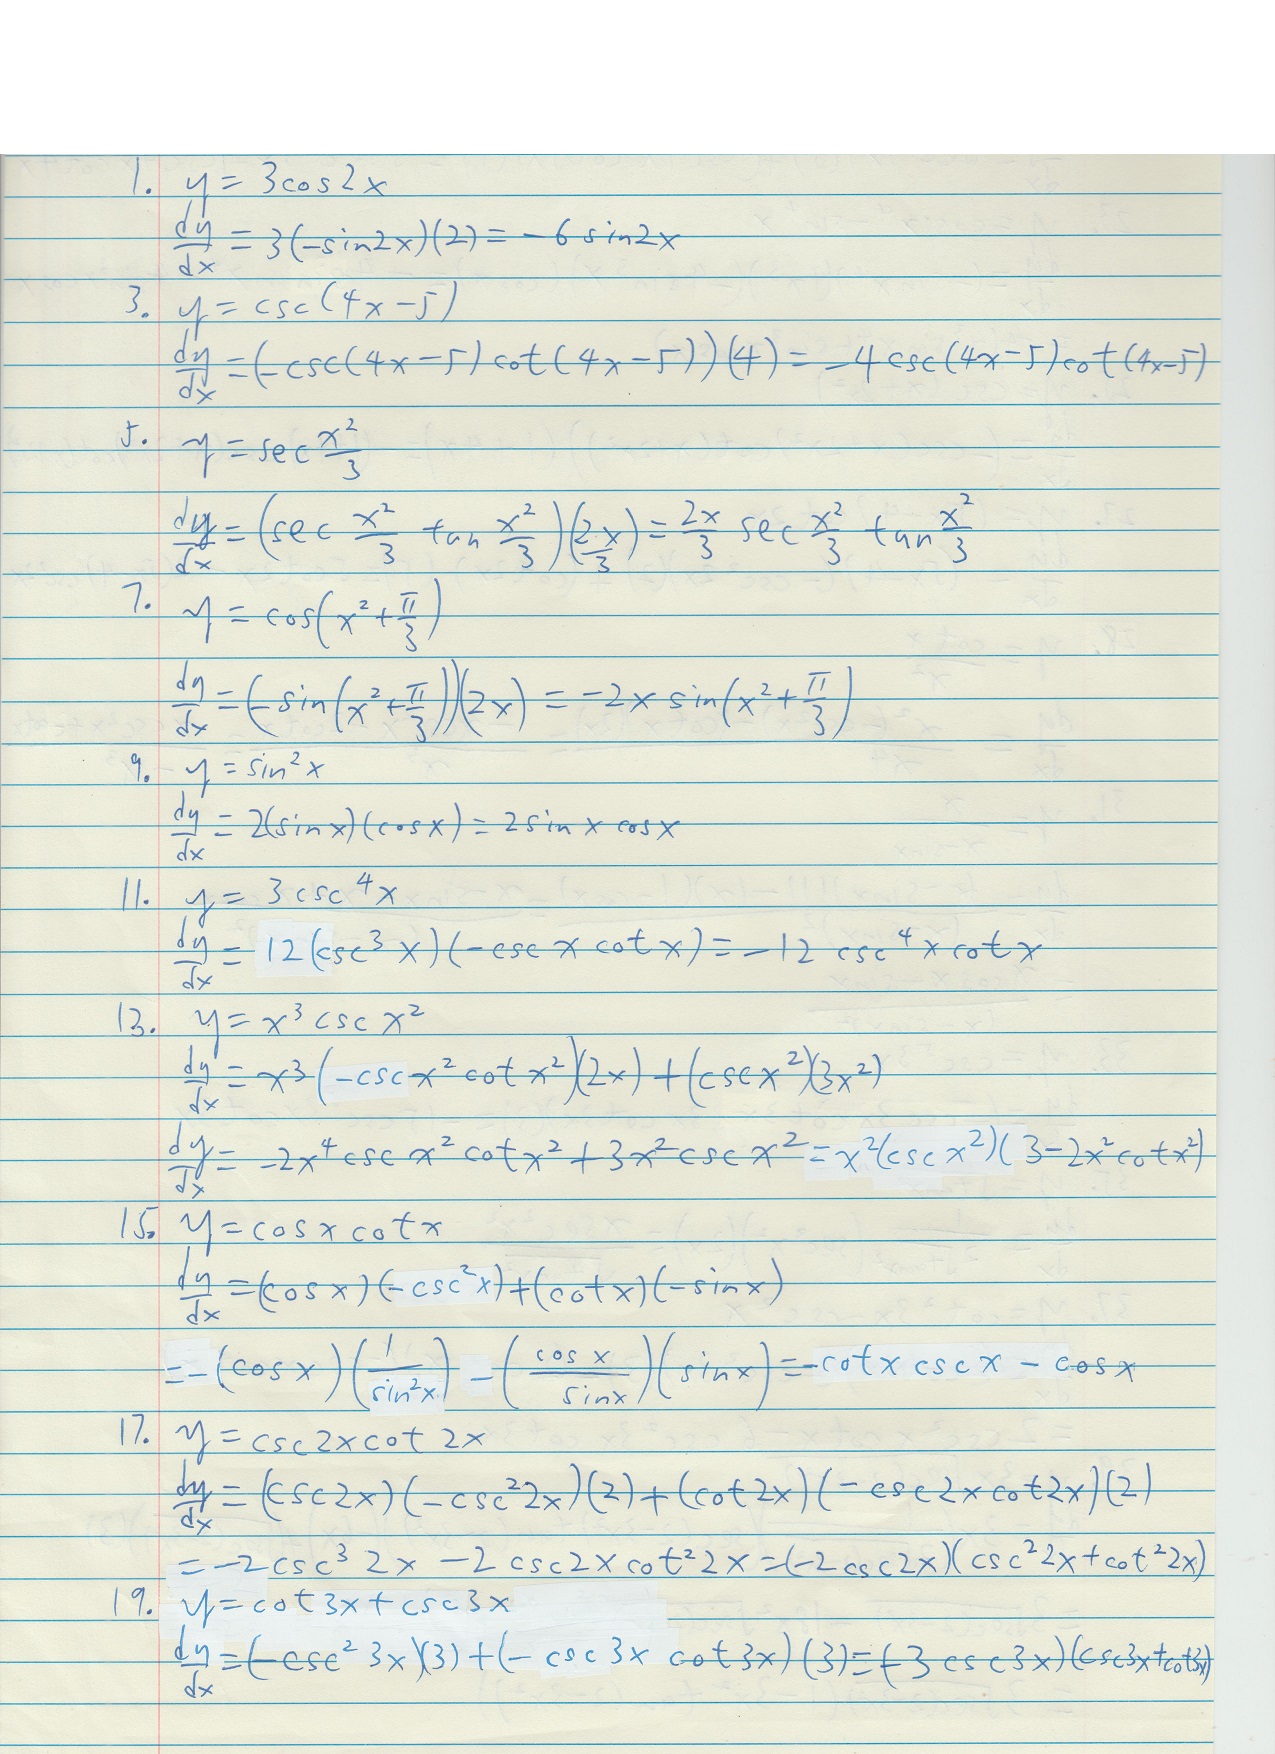 1. y = 3cos2x
dy/dx = 3(-sin2x)(2) = -6 sin2x
3. y = csc(4x-5)
dy/dx = (-csc(4x-5)cot(4x-5))(4) = -4csc(4x-5)cot(4x-5)
5. y = sec x²/3
dy/dx = (sec x²/3 tan x²/3)(2x/3) = 2x/3 sec x²/3 tan x²/3
7. y = cos(x²+π/3)
dy/dx = (-sin(x²+π/3))(2x) = -2x sin(x²+π/3)
9. y = sin²x
dy/dx = 2(sinx)(cosx) = 2sinx cosx
11. y = 3csc⁴x
dy/dx = 12(csc³x)(-cscx cotx) = -12 csc⁴x cotx
13. y = x³ csc x²
dy/dx = x³(-cscx² cotx²)(2x)+(cscx²)(3x²)
dy/dx = -2x⁴cscx² cotx²+3x²cscx² = x²(cscx²)(3-2x²cotx²)
15. y = cosx cotx
dy/dx = (cosx)(-csc²x)+(cotx)(-sinx)
= -(cosx)(1/sin²x) - (cosx/sinx)(sinx) = -cotx cscx - cosx
17. y = csc2xcot2x
dy/dx = (csc2x)(-csc²2x)(2)+(cot2x)(-csc2xcot2x)(2)
= -2csc³2x -2csc2xcot²2x = (-2csc2x)(csc²2x+cot²2x)
19. y = cot3x+csc3x
dy/dx = (-csc²3x)(3)+(-csc3x cot3x)(3) = (-3csc3x)(csc3x+cot3x)